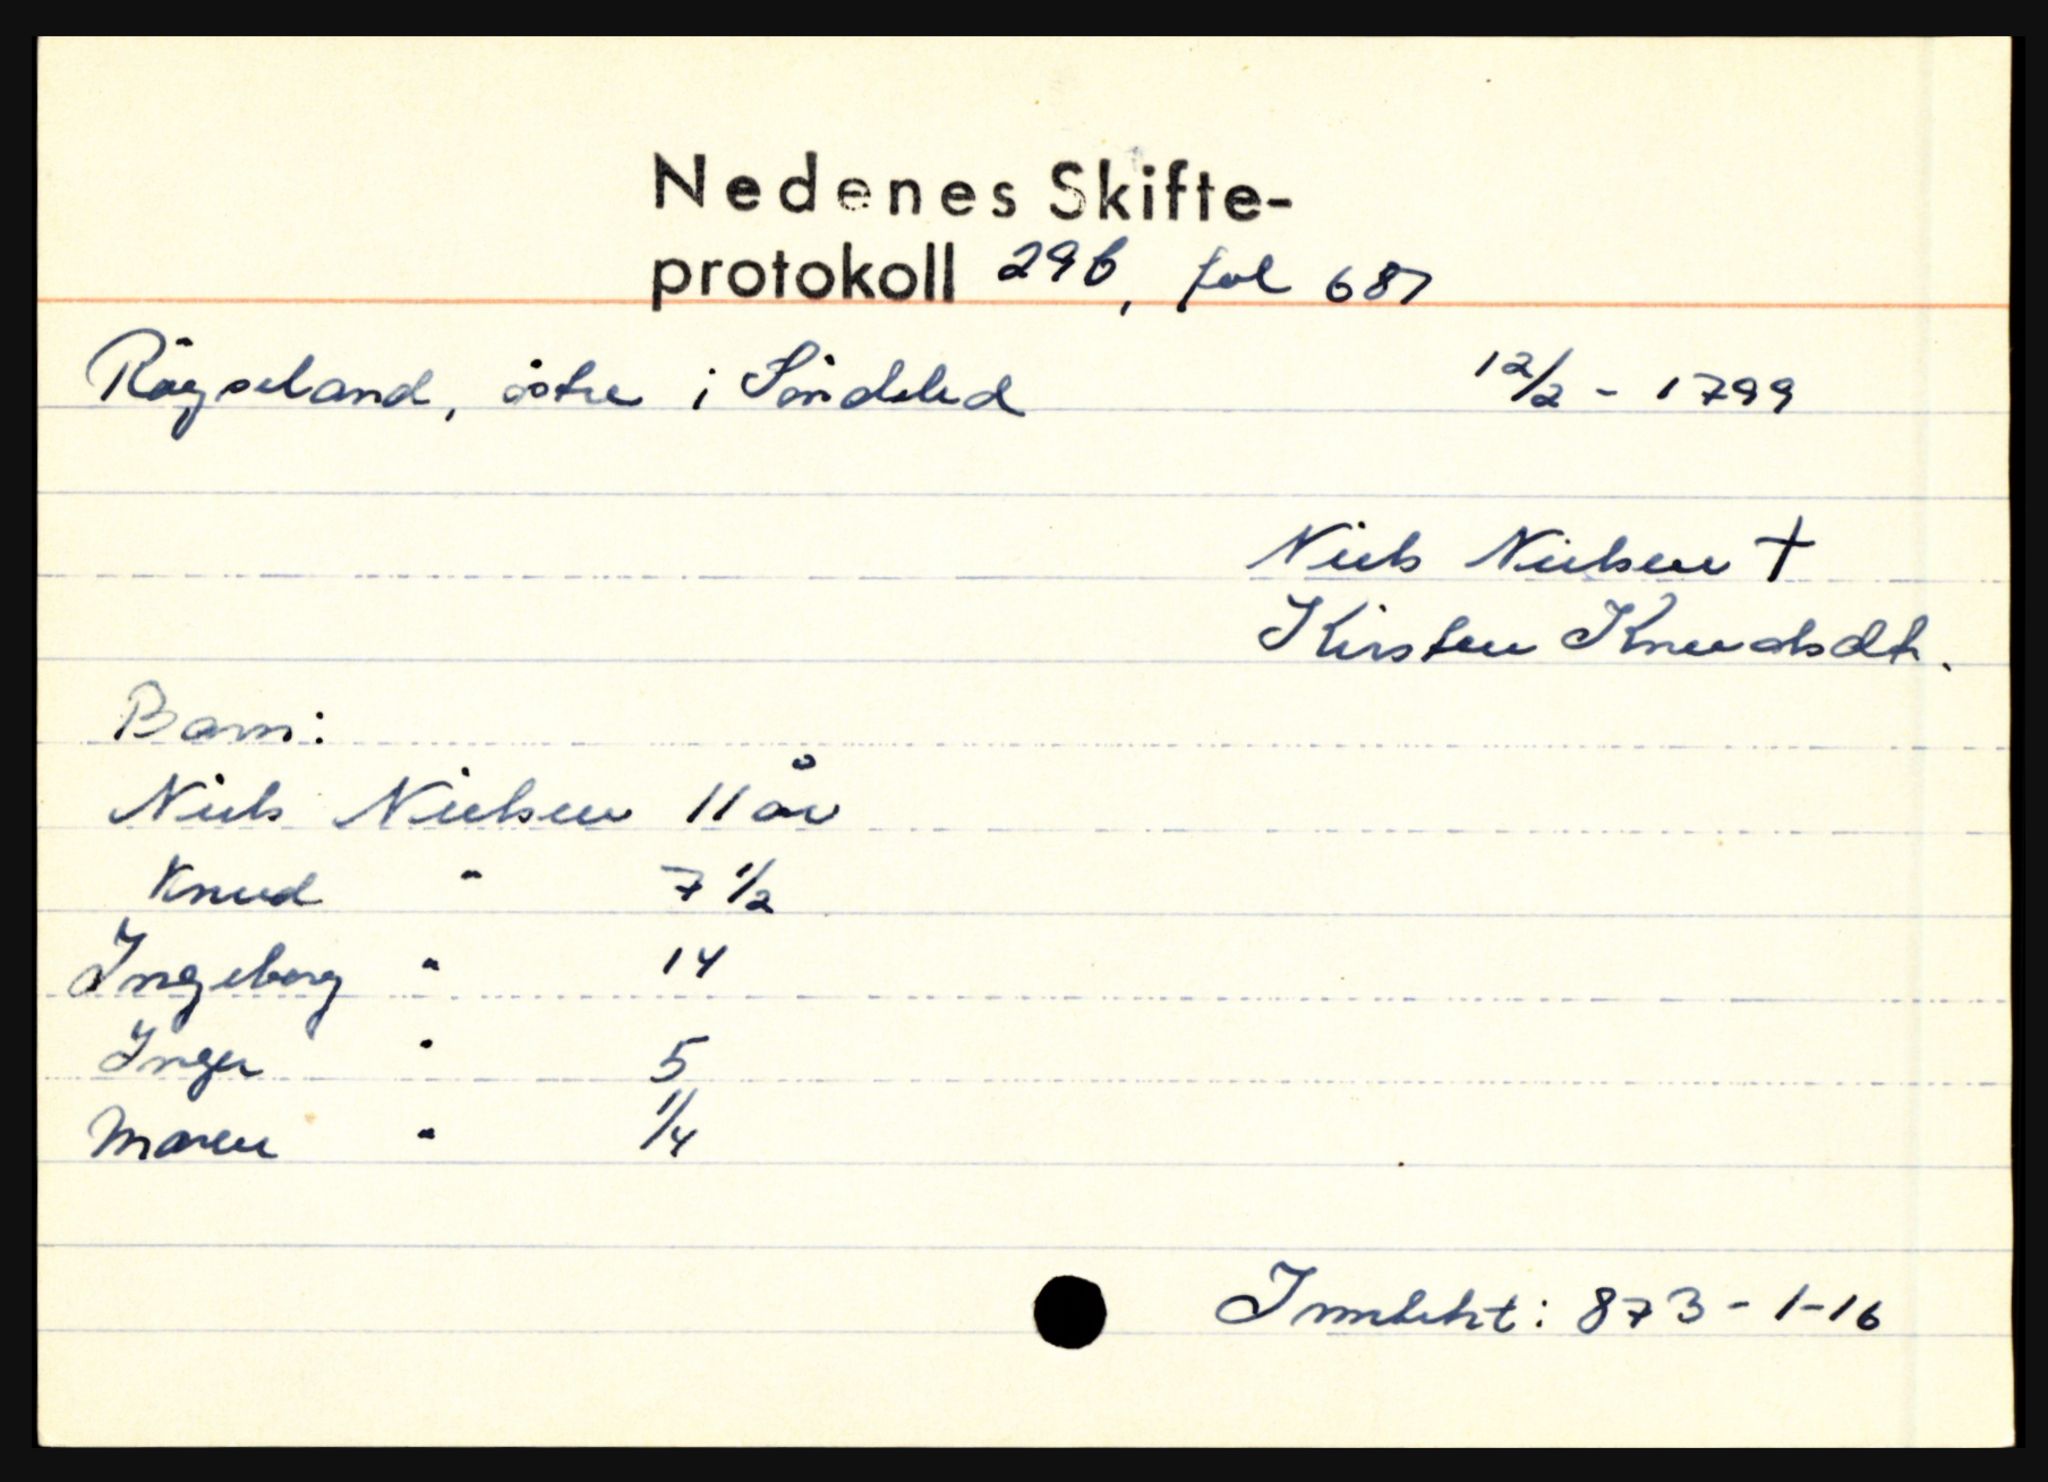 Nedenes Skifte-
protokoll 29b, fol 687
Røyseland, östre i Söndeled 12/2 - 1799
Niels Nielsen †
Kirsten Knudsdtr.
Barn:
Niels Nielsen 11 år
Knud " 7 1/2
Ingeborg " 14
Inger " 5
Maren " 1/4
Inntekt: 873-1-16